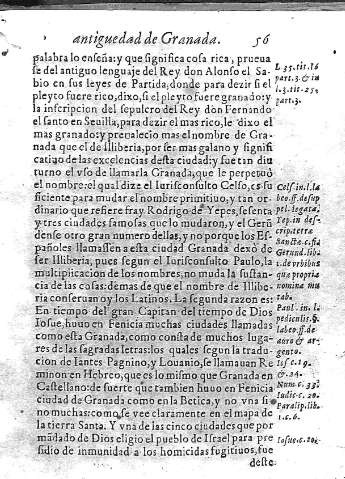 antiguedad de Granada. 56
palabra lo enseña: y que significa cosa rica, prueua
se del antiguo lenguaje del Rey don Alonso el Sa-
bio en sus leyes de Partida, donde para dezir si el
pleyto fuere rico, dixo, si el pleyto fuere granado: y
la inscripcion del sepulcro del Rey don Fernando
el santo en Seuilla, para dezir el mas rico, le dixo el
mas granado: y preualecio mas el nombre de Gra-
nada que el de Illiberia, por ser mas galano y signifi
catiuo de las excelencias desta ciudad: y fue tan diu
turno el vso de llamarla Granada, que le perpetuò
el nombre: el qual dize el Iurisconsulto Celso, es su
ficiente para mudar el nombre primitiuo, y tan or-
dinario que refiere fray Rodrigo de Yepes, sesenta
y tres ciudades famosas que lo mudaron, y el Gerũ
dense otro gran numero dellas, y no porque los Es-
pañoles llamassen a esta ciudad Granada dexò de
ser Illiberia, pues segun el Iurisconsulto Paulo, la
multiplicacion de los nombres, no muda la sustan-
cia de las cosas: demas de que el nombre de Illibe-
ria conseruan oy los Latinos. La segunda razon es:
En tiempo del gran Capitan del tiempo de Dios
Iosue, huuo en Fenicia muchas ciudades llamadas
como esta Granada, como consta de muchos luga-
res de las sagradas letras: los quales segun la tradu-
cion de Santes Pagnino, y Louanio, se llamauan Re
minon en Hebreo, que es lo mismo que Granada en
Castellano: de suerte que tambien huuo en Fenicia
ciudad de Granada como en la Betica, y no vna si-
no muchas: como se vee claramente en el mapa de
la tierra Santa. Y vna de las cinco ciudades que por
mãdado de Dios eligio el pueblo de Israel para pre
sidio de inmunidad a los homicidas fugitiuos, fue
deste
L 35. tit. 16
part. 3. & in
l. 3. tit. 25.
part. 3.
Cels. in l. la
beo. ff. de sup
pel. legata.
Yep. in des-
cript. terræ
Sanctæ. c. fi.
Gerund. lib.
1. de vrbibus
quæ propria
nomina mu
tab.
Paul. in l.
pediculis. §.
labeo. ff. de
auro & ar-
gento.
Ios. c. 19.
& 24.
Num. c. 33.
Iudic. c. 20.
Paralip. lib.
1. c. 6.
Iosue. c. 20.